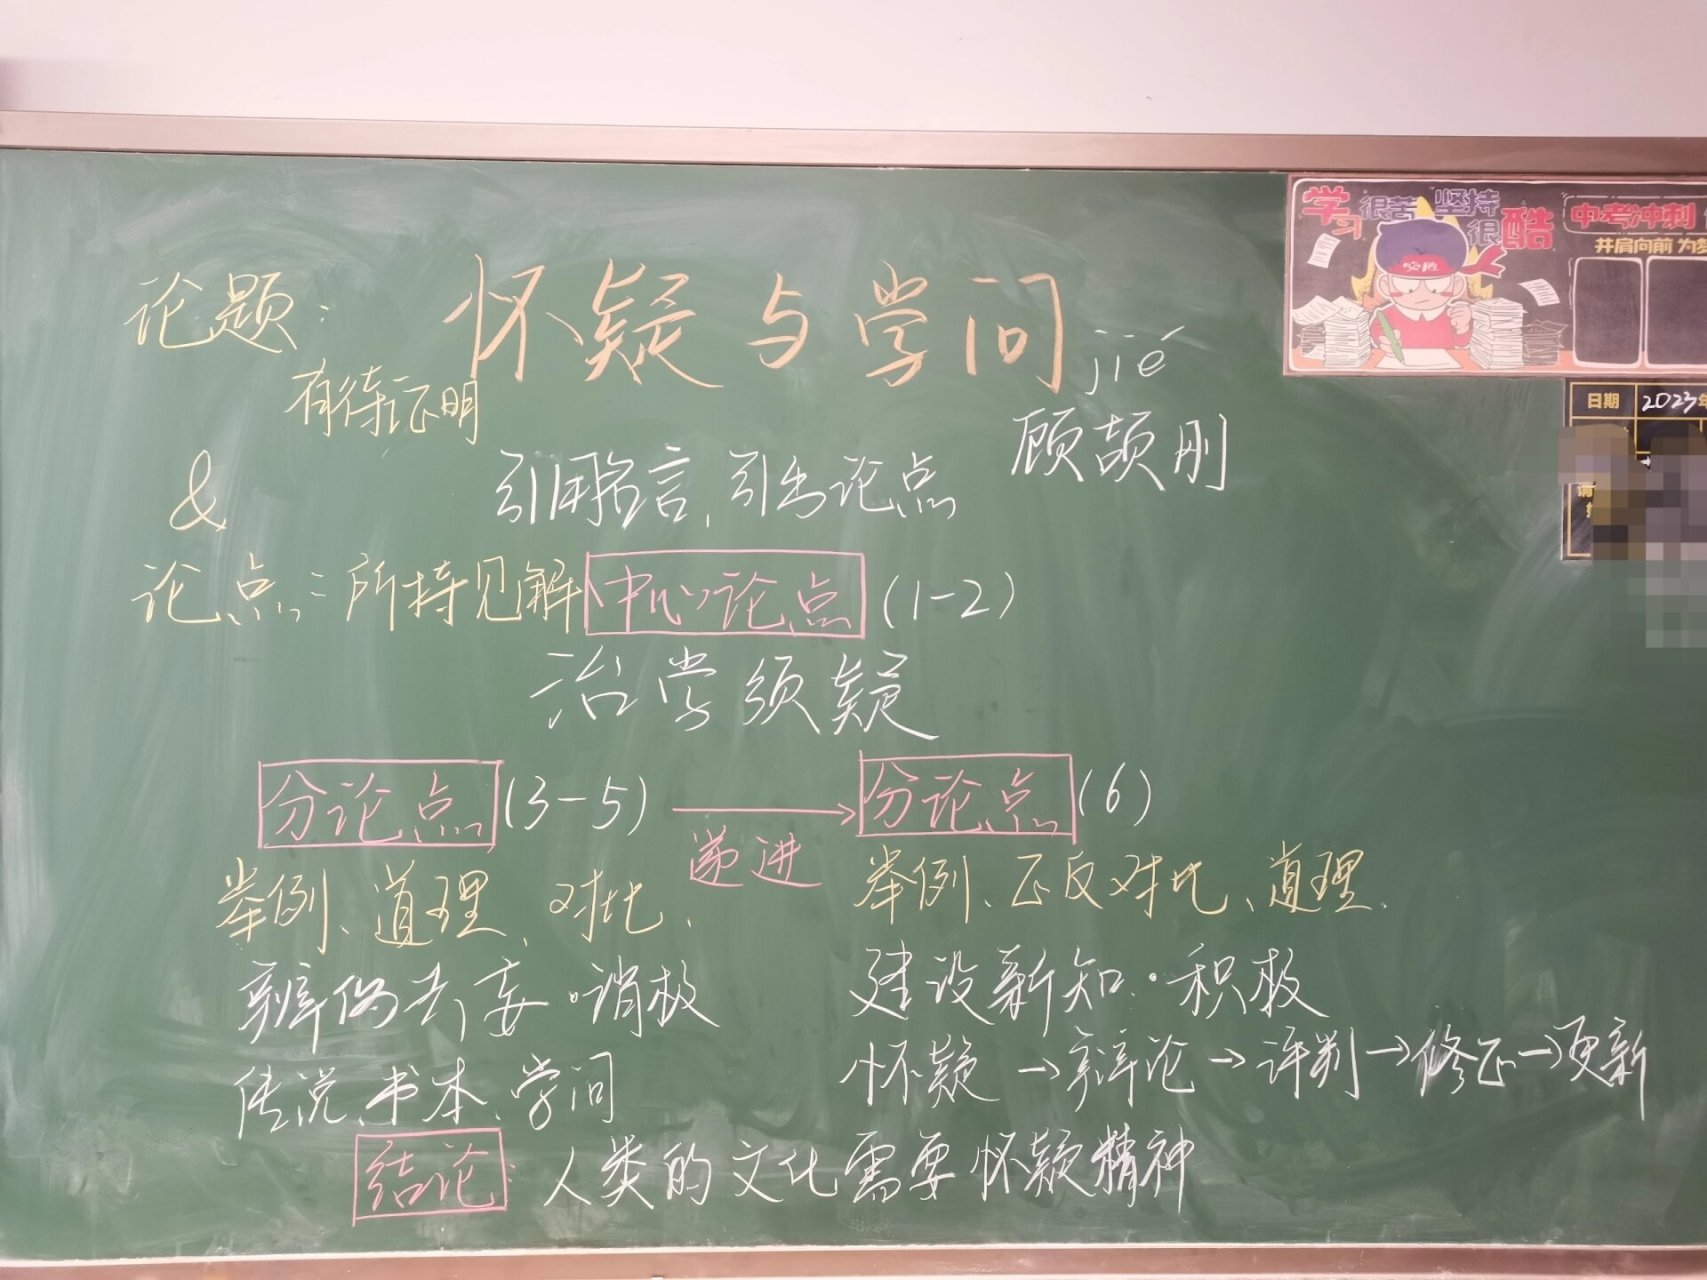 学习很苦 坚持很酷
中考冲刺
并肩向前 为梦
必胜
日期 2023年
论题：怀疑与学问
有待证明
jié
顾颉刚
&
引用名言，引出论点
论点：所持见解 中心论点 (1-2)
治学须疑
分论点 (3-5) → 分论点 (6)
递进
举例、道理、对比.
举例、正反对比、道理.
辨伪去妄·消极
建设新知·积极
传说、书本、学问
怀疑→辩论→评判→修正→更新
结论：人类的文化需要怀疑精神